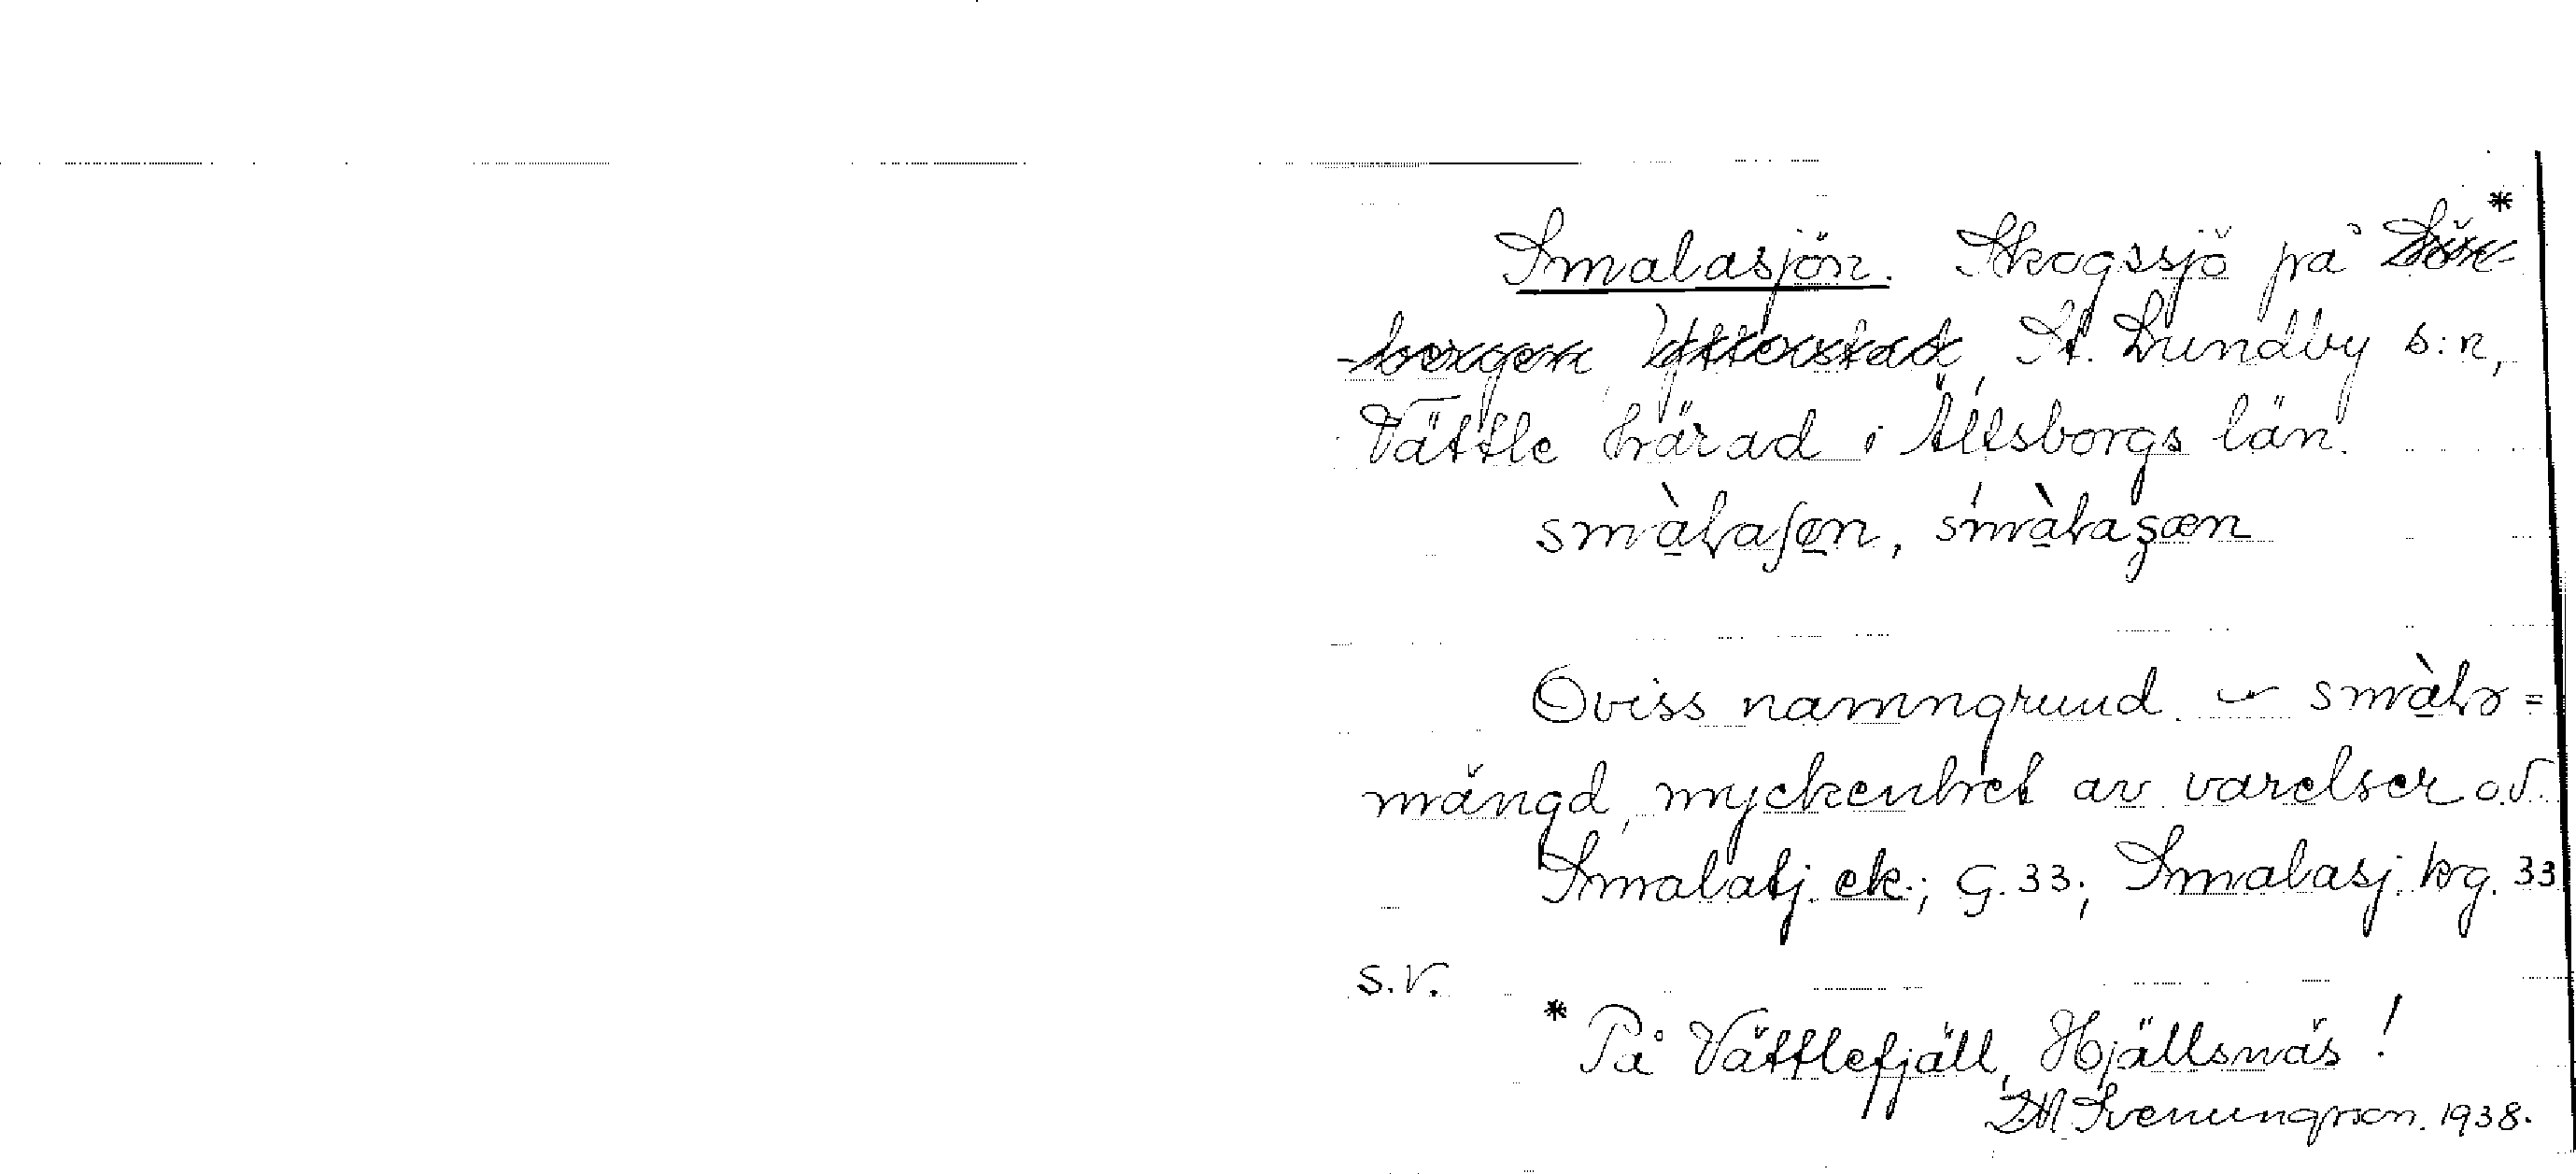 Smalasjön. Skogssjö på *
St. Lundby s:n,
Vättle härad i Älvsborgs län.
smàlaʃøn, smàlaʂœn
Oviss namngrund. – smàlə =
mängd, myckenhet av varelser o.d.
Smalatj. ek.; G. 33; Smalasj. kg. 33
s.v.
* På Vättlefjäll, Hjällsnäs!
Svenungsson. 1938.